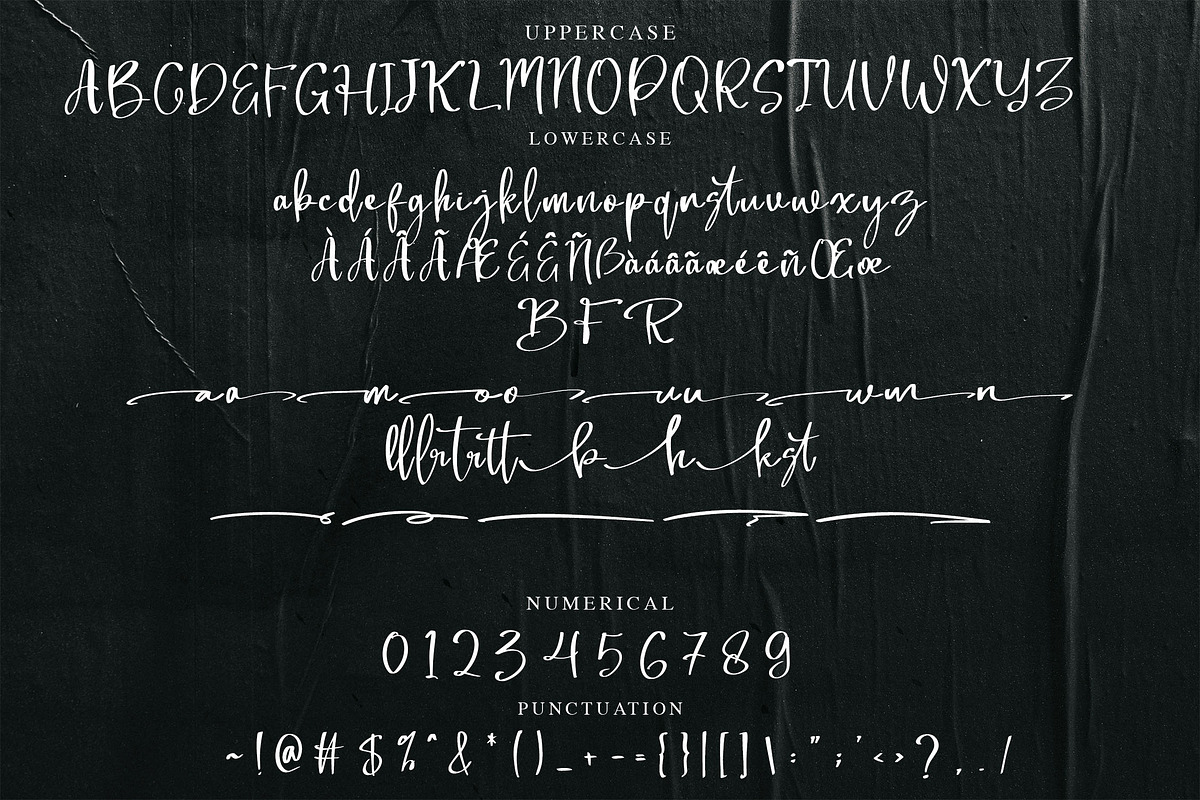 UPPERCASE
ABCDEFGHIJKLMNOPQRSTUVWXYZ
LOWERCASE
abcdefghijklmnopqrstuvwxyz
ÀÁÂÃÆÉÊÑBàáâãæéêñŒœ
BFR
aa m oo uu wm n
lllbrtrttt b h kst
NUMERICAL
0123456789
PUNCTUATION
~!@#$%^&*()_+--={}|[]\:";'<>?,./